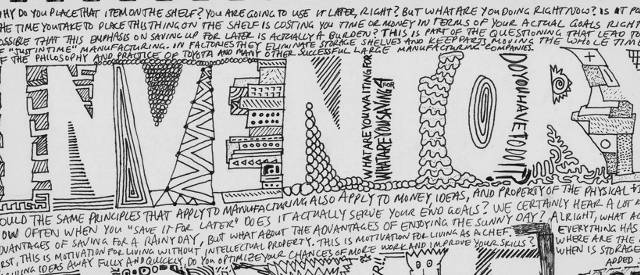 WHY DO YOU PLACE THAT ITEM ON THE SHELF? YOU ARE GOING TO USE IT LATER, RIGHT? BUT WHAT ARE YOU DOING RIGHT NOW? IS AT
THE TIME YOU TAKE TO PLACE THIS THING ON THE SHELF IS COSTING YOU TIME OR MONEY IN TERMS OF YOUR ACTUAL GOALS RIGHT
POSSIBLE THAT THIS EMPHASIS ON SAVING UP FOR LATER IS ACTUALLY A BURDEN? THIS IS PART OF THE QUESTIONING THAT LEAD TO
"JUST IN TIME" MANUFACTURING. IN FACTORIES THEY ELIMINATE STORAGE SHELVES AND KEEP PARTS MOVING THE WHOLE TIME
OF THE PHILOSOPHY AND PRACTICE OF TOYOTA AND MANY OTHER SUCCESSFUL LARGE MANUFACTURING COMPANIES.
INVENTOR
WHAT ARE YOU WAITING FOR
WHAT ARE YOU SAVING IT FOR
DO YOU HAVE TO DO IT
COULD THE SAME PRINCIPLES THAT APPLY TO MANUFACTURING ALSO APPLY TO MONEY, IDEAS, AND PROPERTY OF THE PHYSICAL
HOW OFTEN WHEN YOU "SAVE IT FOR LATER" DOES IT ACTUALLY SERVE YOUR END GOALS? WE CERTAINLY HEAR A LOT
ADVANTAGES OF SAVING FOR A RAINY DAY, BUT WHAT ABOUT THE ADVANTAGES OF ENJOYING THE SUNNY DAY? ALRIGHT, WHAT
THIS IS MOTIVATION FOR LIVING WITHOUT INTELLECTUAL PROPERTY. THIS IS MOTIVATION FOR LIVING AS A CHEF,
GIVING IDEAS AWAY FULLY AND QUICKLY, DO YOU OPTIMIZE YOUR CHANCES OF MORE WORK AND IMPROVE YOUR SKILLS?
EVERYTHING HAS
WHERE ARE THE
WHEN IS STORAGE
ADDED